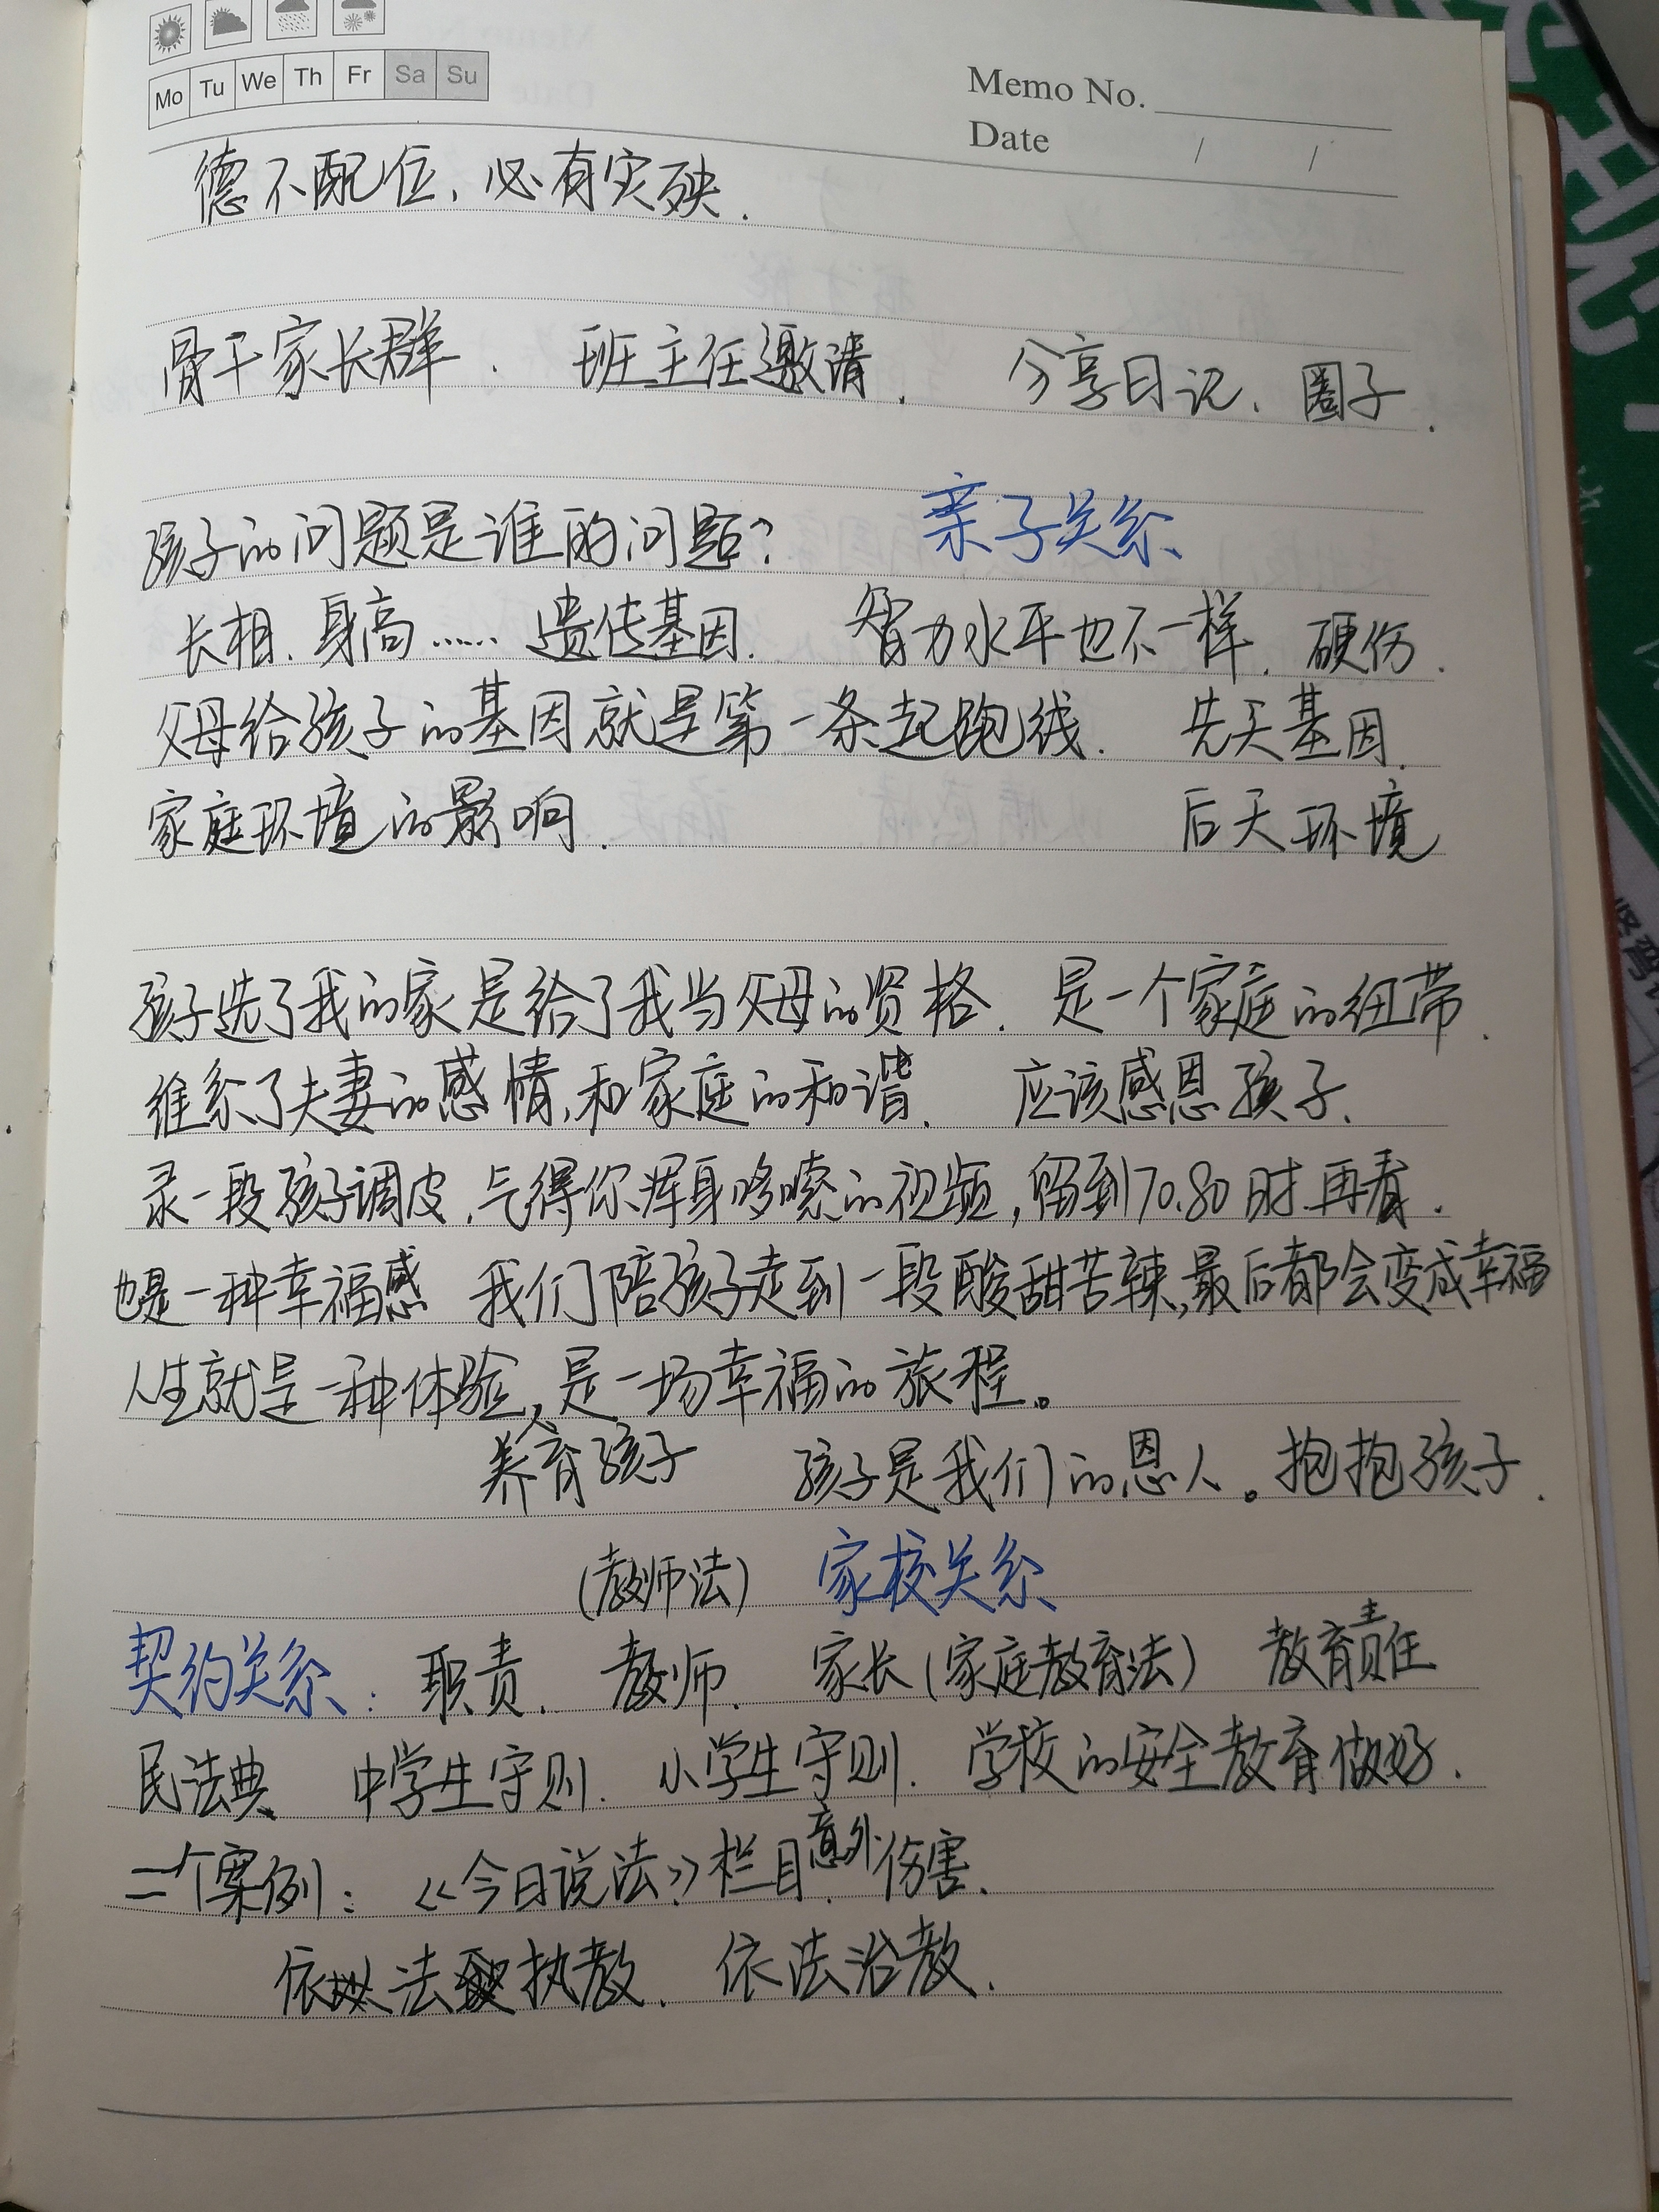 Mo Tu We Th Fr Sa Su
Memo No.
Date / /
德不配位、必有灾殃.
骨干家长群. 班主任邀请. 分享日记、圈子.
孩子的问题是谁的问题? 亲子关系
长相、身高…… 遗传基因. 智力水平也不一样. 硬伤.
父母给孩子的基因就是第一条起跑线. 先天基因.
家庭环境的影响. 后天环境
孩子选了我的家是给了我当父母的资格. 是一个家庭的纽带.
维系了夫妻的感情,和家庭的和谐. 应该感恩孩子.
录一段孩子调皮,气得你浑身哆嗦的视频,留到70.80时再看.
也是一种幸福感 我们陪孩子走到一段酸甜苦辣,最后都会变成幸福
人生就是一种体验,是一场幸福的旅程。
养育孩子 孩子是我们的恩人。抱抱孩子.
(教师法) 家校关系
契约关系: 职责. 教师. 家长(家庭教育法) 教育主责任
民法典 中学生守则. 小学生守则. 学校的安全教育做好.
二个案例: 《今日说法》栏目.意外伤害.
依法执教. 依法治教.